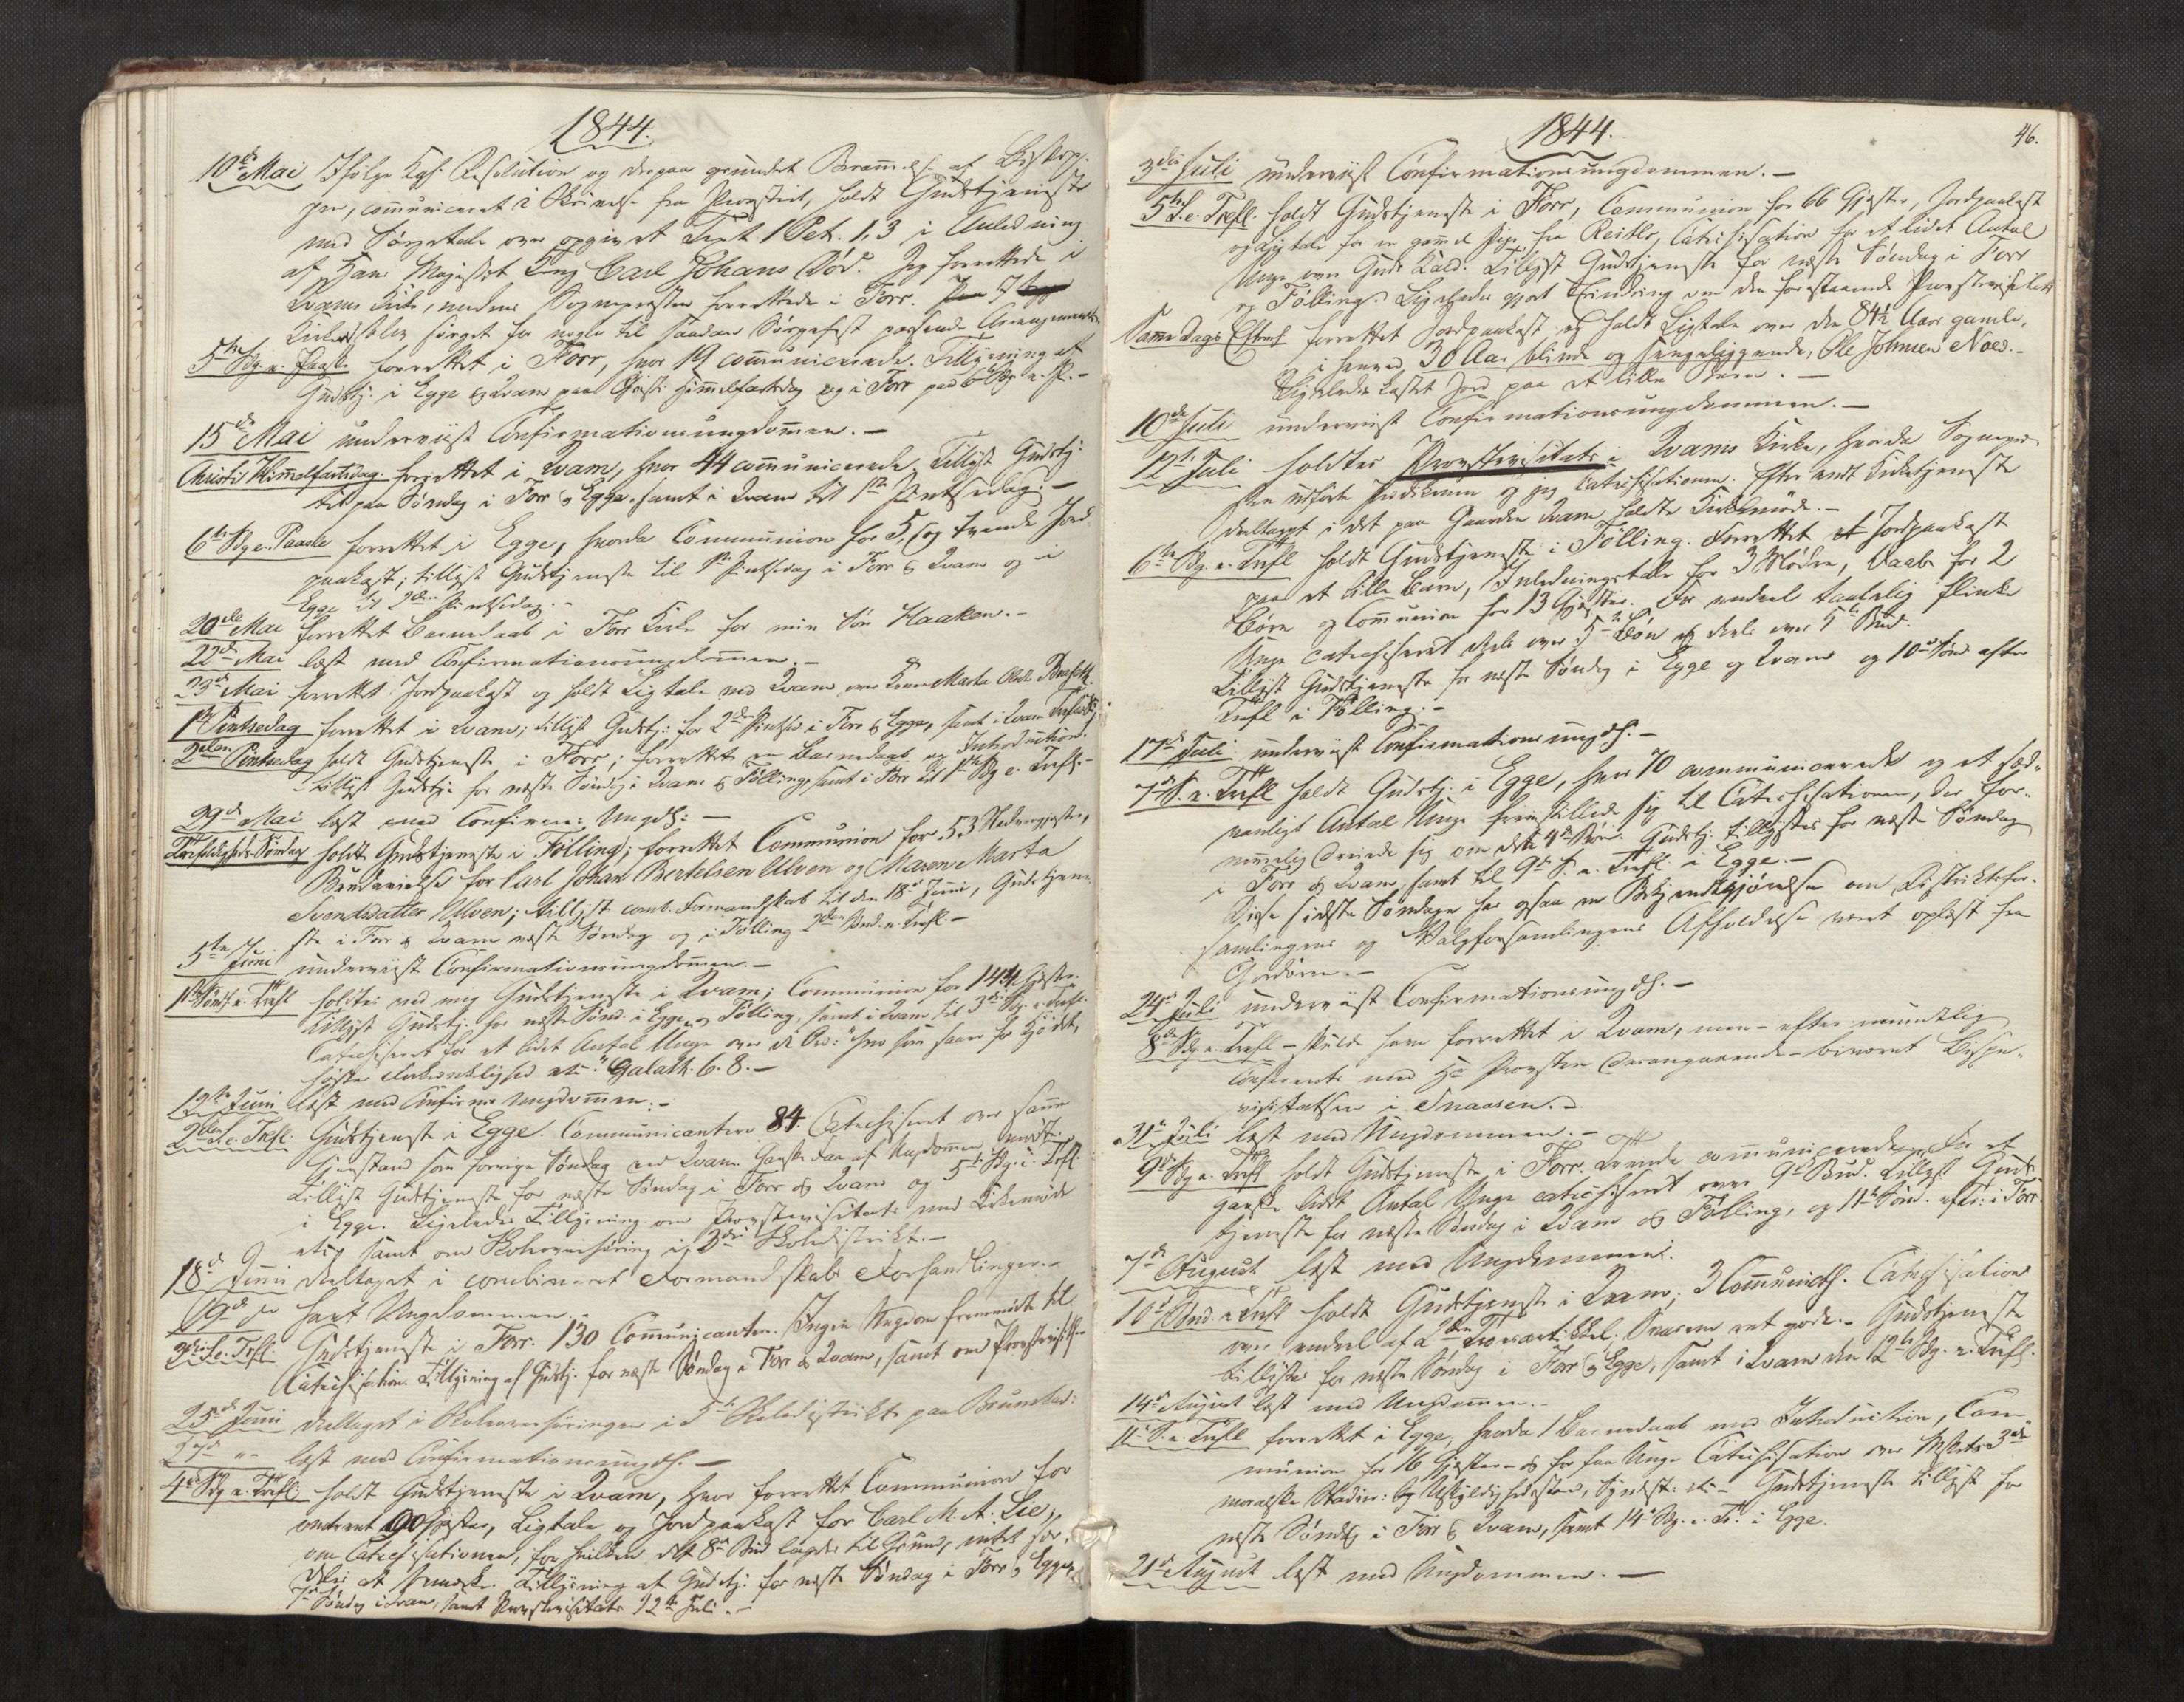 1844.
10de Mai Ifølge Kgl: Resolution og derpaa grundet Beram̄else af Biskop-
pen, com̄uniceret i Skrivelse fra Provstiet, holdt Gudstjeneste
med Sørgetale over opgivet Text 1 Pet. 1,3 i Anledning
af Hans Majestæt Kong Carl Johans Død. Jeg forrettede i
Qvams Kirke, medens Sognepræsten forrettede i Forr.
Kirken blev sørget for nogle til saadan Sørgefest passende Arrangementer
5te Sdg. e. Paaske forrettet i Forr, hvor 19 com̄unicerede. Tillysning af
Gudstj. i Egge og Qvam paa Christi Him̄elfartsdag og i Forr paa 6te Sdg. e. P. -
15de Mai underviist Confirmationsungdom̄en. -
Christi Him̄elfartsdag. forrettet i Qvam, hvor 44 com̄unicerede. Tillyst Gudstj:
til paa Søndag i Forr & Egge, samt i Qvam til 1ste Pintsedag. -
6te Sdg e. Paaske forrettet i Egge, hvorda Com̄union for 5, og tvende Jord-
paakast; tillyst Gudstjeneste til 1ste Pintsedag i Forr & Qvam og i
Egge til 2den Pintsedag. -
20de Mai forrettet Barnedaab i Forr Kirke for min Søn Haaken. -
22de Mai læst med Confirmationsungdom̄en. -
23de Mai forrettet Jordpaakast og holdt Ligtale ved Qvam over Marta
1ste Pintsedag forrettet i Qvam; tillyst Gudstj: for 2den Pintsed. i Forr & Egge, samt i Qvam
2den Pintsedag holdt Gudstjeneste i Forr; forrettet en Barnedaab og Introduction.
Tillyst Gudstj. for næste Søndag i Qvam & Følling, samt i Forr til 1ste Sdg e. Trefl. -
29de Mai læst med Confirm: Ungdh: -
Trefoldigheds Søndag holdt Gudstjeneste i Følling; forrettet Communion for 53 Nadvergjester,
Brudevielse for Carl Johan Bertelsen Ulven og Maren Marta
Svendsdatter Ulven; tillyst comb. Formandskab til den 18de Juni, Gudstjene-
ste i Forr & Qvam næste Søndag og i Følling 2den Sønd. e. Trefl. -
5te Juni underviist Confirmationsungdommen. -
1ste Sønd. e. Trefl holdtes ved mig Gudstjeneste i Qvam; Communion for 144 Gjester.
Tillyst Gudstj. for næste Sønd. i Egge og Følling, samt i Qvam til 3die Sdg. e. Trefl.
Catechiseret for et lidet Antal Unge over de Ord: "hvo som saaer for Kjødet,
høster Forkrænkelighed etc." Galath. 6. 8. -
12te Juni læst med Confirm Ungdom̄en. -
2den S. e. Trefl. Gudstjeneste i Egge. Communicanter 84. Catechiseret over sam̄e
Gjenstand som forrige Søndag ved Qvam. Ganske Faa af Ungdom̄en mødte.
Tillyst Gudstjeneste for næste Søndag i Forr & Qvam og 5te Sdg. e. Trefl.
i Egge. Ligeledes Tillysning om Provstevisitats med Kirkemøde
etc, samt om Skoleoverhøring i 3die Skoledistrikt. -
18de Juni deltaget i combineret Formandskabs Forhandlinger. -
19de Do havt Ungdommen. -
3die S. e. Trefl. Gudstjeneste i Forr. 130 Com̄unicanter. Ingen Ungdom fremmødte til
Catechisation. Tillysning af Gudstj. for næste Søndag i Forr & Qvam, samt om Provstevisitats
25de Juni deltaget i Skoleoverhøringen i 5te Skoledistrikt paa
27de "- læst med Confirmationsungdh. -
4de Sdg e. Trefl. holdt Gudstjeneste i Qvam, hvor forrettet Communion for
omtrent 90 Gjester, Ligtale og Jordpaakast for Carl M. A. Lie,
om Catechisationen, for hvilken det 8de Bud lagdes til Grund, intet sær-
deles at bemærke. Tillysning af Gudstj. for næste Søndag i Forr & Egge,
7de Søndag i Qvam, samt Provstevisitats 12te Juli. -
1844.
46.
3die Juli underviist Confirmationsungdommen. -
5te S. e. Trefl. holdt Gudstjeneste i Forr, Communion for 66 Gjester, Jordpaakast
og Ligtale for en gam̄el Pige fra Reitlo, Catechisation for et lidet Antal
Unge over Guds Kald. Tillyst Gudstjeneste for næste Søndag i Forr
og Følling. Ligeledes gjort Erindring om den forestaaende Provstevisitats
Sam̄e Dags Efterm forrettet Jordpaakast og holdt Ligtale over den 84½ Aar gamle,
i henved 30 Aar blinde og sengeliggende, Ole Johnsen Næs. -
Ligeledes kastet Jord paa et lille Barn. -
10de Juli underviist Confirmationsungdommen. -
12te Juli holdtes Provstevisitats i Qvams Kirke, hvorda Sognepræ-
sten udførte Prædikenen og jeg Catechisationen. Efter endt Kirketjeneste
deltaget i det paa Gaarden Qvam holdte Kirkemøde. -
6te Sdg. e. Trefl holdt Gudstjeneste i Følling. Forrettet Jordpaakast
paa et lille Barn, Indledningstale for 3 Mødre, Daab for 2
Børn og Com̄union for 13 Gjester. For endeel taalelig flinke
Unge catechiseret deels over 5te Bøn og deels over 5te Bud.
Tillyst Gudstjeneste for næste Søndag i Egge og Qvam og 10de Sønd. efter
Trefl i Følling. -
17de Juli underviist Confirmationsungdh. -
7de S. e. Trefl holdt Gudstj. i Egge, hvor 70 communicerede og et sæd-
vanligt Antal Unge fremstillede sig til Catechisationen, der for-
nemmelig dreiede sig om det 4de Bøn. Gudstj. tillystes for næste Søndag
i Forr & Qvam, samt til 9de S. e. Trefl. i Egge. -
Disse sidste Søndage har ogsaa en Bekjendtgjørelse om Distriktsfor-
samlingens og Valgforsamlingens Afholdelse været oplæst fra
Chordøren. -
24de Juli underviist Confirmationsungdh. -
8de Sdg. e. Trefl - skulde have forrettet i Qvam, men - efter mundtlig
Conference med Hr Provsten derangaaende - bivaanet Bispe-
visitatsen i Snaasen. -
31te Juli læst med Ungdommen. -
9de Sdg e. Trefl holdt Gudstjeneste i Forr. Tvende communicerede. For et
ganske lidet Antal Unge catechiseret over 9de Bud. Tillyst Guds-
tjeneste for næste Søndag i Qvam & Følling, og 11te Sønd. eftr. i Forr
7de August læst med Ungdommen.
10de Sønd. e Trefl holdt Gudstjeneste i Qvam; 3 Com̄unicth. Catechisation
over endeel af 2den Troesartikkel. Svarene ret gode. - Gudstjeneste
tillystes for næste Søndag i Forr & Egge, samt i Qvam den 12te Sdg. e. Trefl.
14de August læst med Ungdom̄en. -
11te S. e. Trefl forrettet i Egge, hvorda 1 Barnedaab med Introduction, Com-
munion for 16 Gjester - & for faa Unge Catechisation over Msksts 3de
moralske Stadier: Uskyldighedsstan, Syndest: etc - Gudstjeneste tillyst for
næste Søndag i Forr & Qvam, samt 14de Sdg. e. Tr. i Egge.
21de August læst med Ungdommen. -